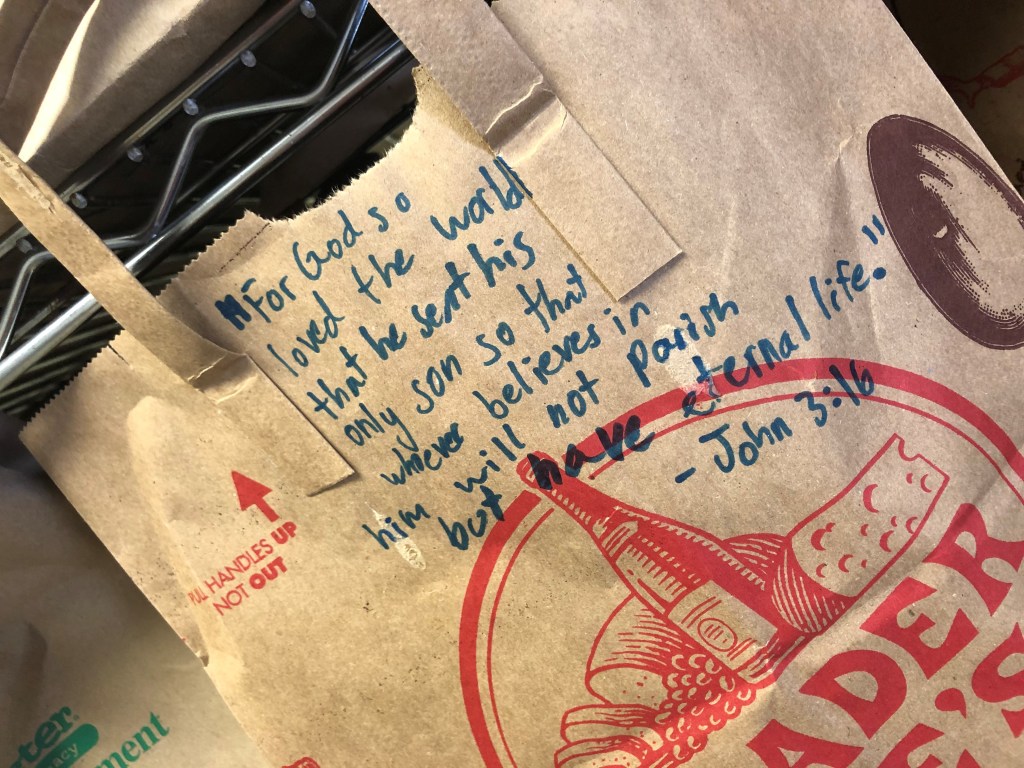 "For God so
loved the world
that he sent his
only son so that
whoever believes in
him will not parish
but have eternal life."
- John 3:16
PULL HANDLES UP
NOT OUT
ADER
E'S
ter
ment